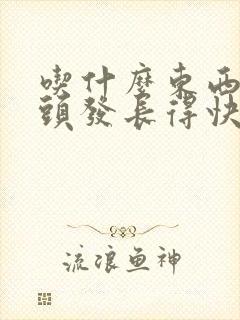 喫什麼東西
頭發長得快
流浪鱼神